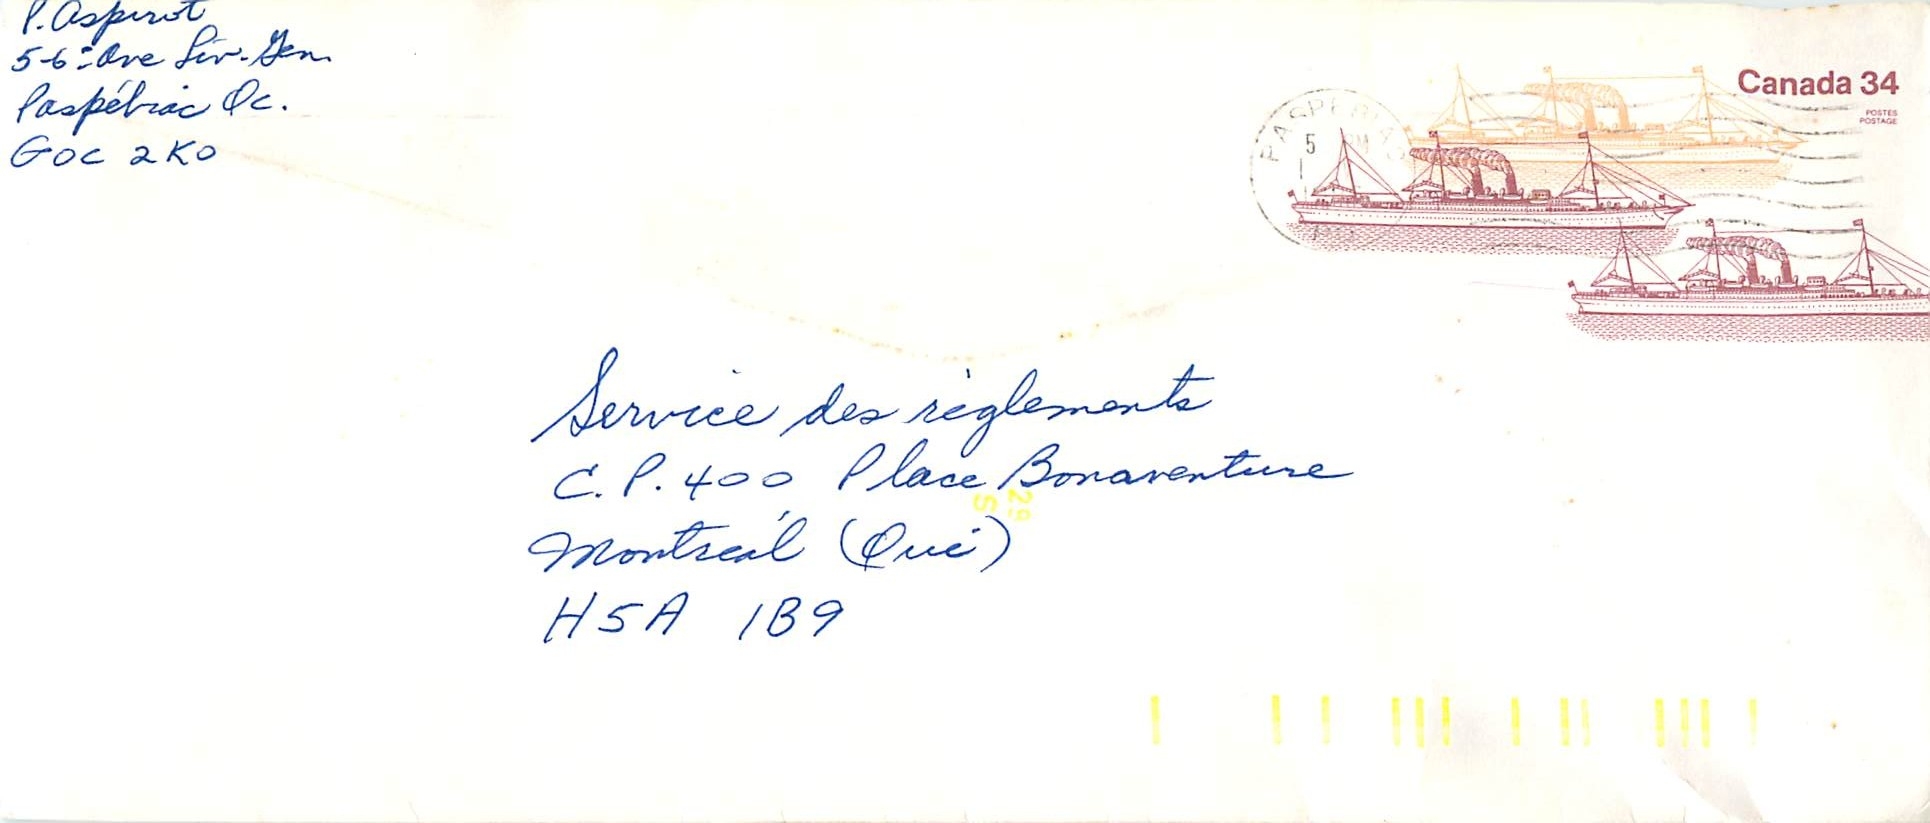 P. Aspirot
5-6e Ave Liv.-Gen.
Paspébiac Qc.
G0C 2K0
Canada 34
POSTES
POSTAGE
PASPEBIAC
5 PM
Service des règlements
C.P. 400 Place Bonaventure
29
S
Montréal (Qué)
H5A 1B9